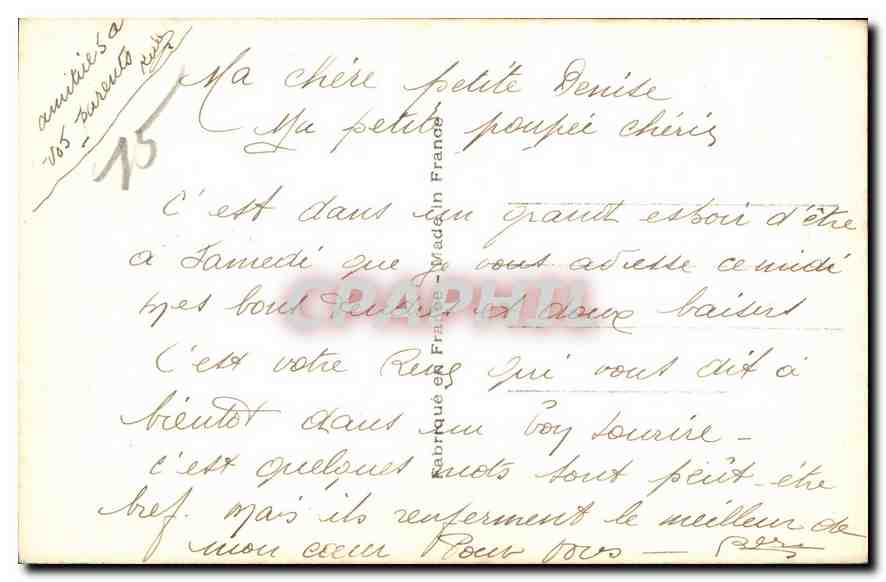 amitiés a
vos parents
René
15
Ma chère petite Denise
Ma petite poupée chérie
C'est dans un grand espoir d'être
a Samedi que je vous adesse ce midi
mes bons tendres et doux baisers
C'est votre René qui vous dit à
bientôt dans un bon sourire -
c'est quelques mots sont peût-être
bref. mais ils renferment le meilleur de
mon cœur Pour vous - René
Fabriqué en France - Made in France
CPAPHIL